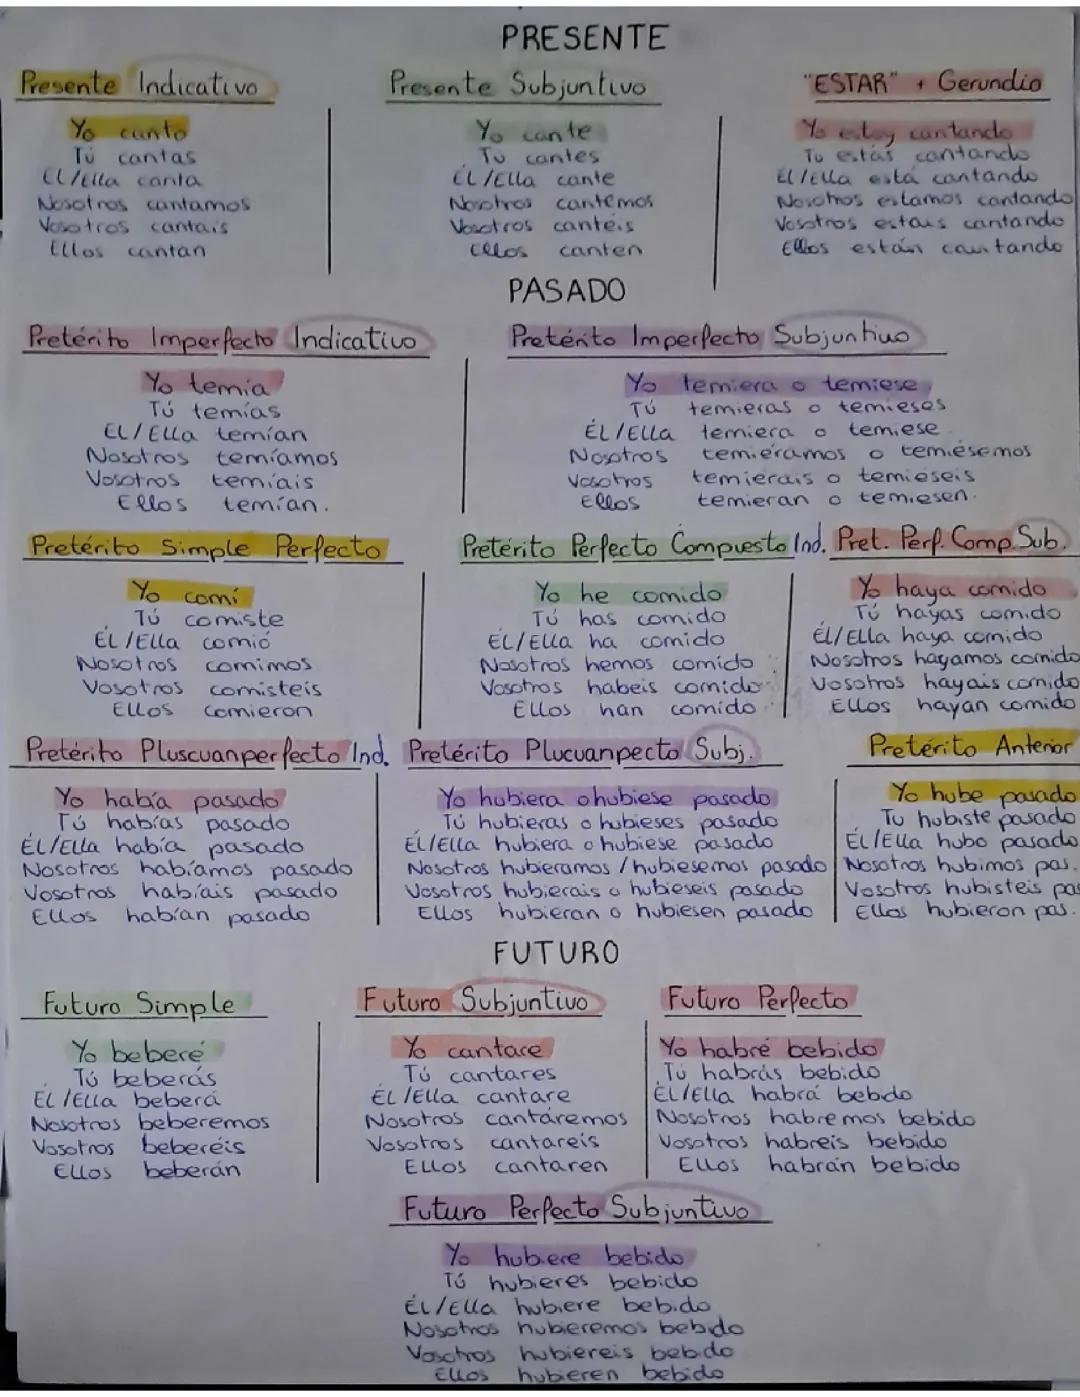 PRESENTE
Presente Indicativo
Yo canto
Tú cantas
El/Ella canta
Nosotros cantamos
Vosotros cantais
Ellos cantan
Presente Subjuntivo
Yo cante
Tu cantes
ÉL/Ella cante
Nosotros cantemos
Vosotros cantéis
Ellos canten
"ESTAR" + Gerundio
Yo estoy cantando
Tu estás cantando
El/Ella está cantando
Nosotros estamos cantando
Vosotros estais cantando
Ellos están cantando
PASADO
Pretérito Imperfecto Indicativo
Yo temía
Tú temías
EL/Ella temían
Nosotros temíamos
Vosotros temíais
Ellos temían.
Pretérito Imperfecto Subjuntivo
Yo temiera o temiese
Tú temieras o temieses
ÉL/Ella temiera o temiese
Nosotros temiéramos o temiésemos
Vosotros temierais o temieseis
Ellos temieran o temiesen.
Pretérito Simple Perfecto
Yo comí
Tú comiste
ÉL/Ella comió
Nosotros comimos
Vosotros comisteis
Ellos comieron
Pretérito Perfecto Compuesto Ind.
Yo he comido
Tú has comido
ÉL/Ella ha comido
Nosotros hemos comido
Vosotros habeis comido
Ellos han comido
Pret. Perf. Comp. Sub.
Yo haya comido
Tú hayas comido
Él/Ella haya comido
Nosotros hayamos comido
Vosotros hayais comido
Ellos hayan comido
Pretérito Pluscuanperfecto Ind.
Yo había pasado
Tú habías pasado
ÉL/Ella había pasado
Nosotros habíamos pasado
Vosotros habíais pasado
Ellos habían pasado
Pretérito Plucuanpecto Subj.
Yo hubiera o hubiese pasado
Tú hubieras o hubieses pasado
ÉL/Ella hubiera o hubiese pasado
Nosotros hubieramos / hubiesemos pasado
Vosotros hubierais o hubieseis pasado
Ellos hubieran o hubiesen pasado
Pretérito Anterior
Yo hube pasado
Tu hubiste pasado
ÉL/Ella hubo pasado
Nosotros hubimos pas.
Vosotros hubisteis pas
Ellos hubieron pas.
FUTURO
Futuro Simple
Yo beberé
Tú beberás
ÉL/Ella beberá
Nosotros beberemos
Vosotros beberéis
Ellos beberán
Futuro Subjuntivo
Yo cantare
Tú cantares
ÉL/Ella cantare
Nosotros cantáremos
Vosotros cantareis
Ellos cantaren
Futuro Perfecto
Yo habré bebido
Tú habrás bebido
ÉL/Ella habrá bebido
Nosotros habremos bebido
Vosotros habreis bebido
Ellos habrán bebido
Futuro Perfecto Subjuntivo
Yo hubiere bebido
Tú hubieres bebido
ÉL/Ella hubiere bebido
Nosotros hubieremos bebido
Vosotros hubiereis bebido
Ellos hubieren bebido